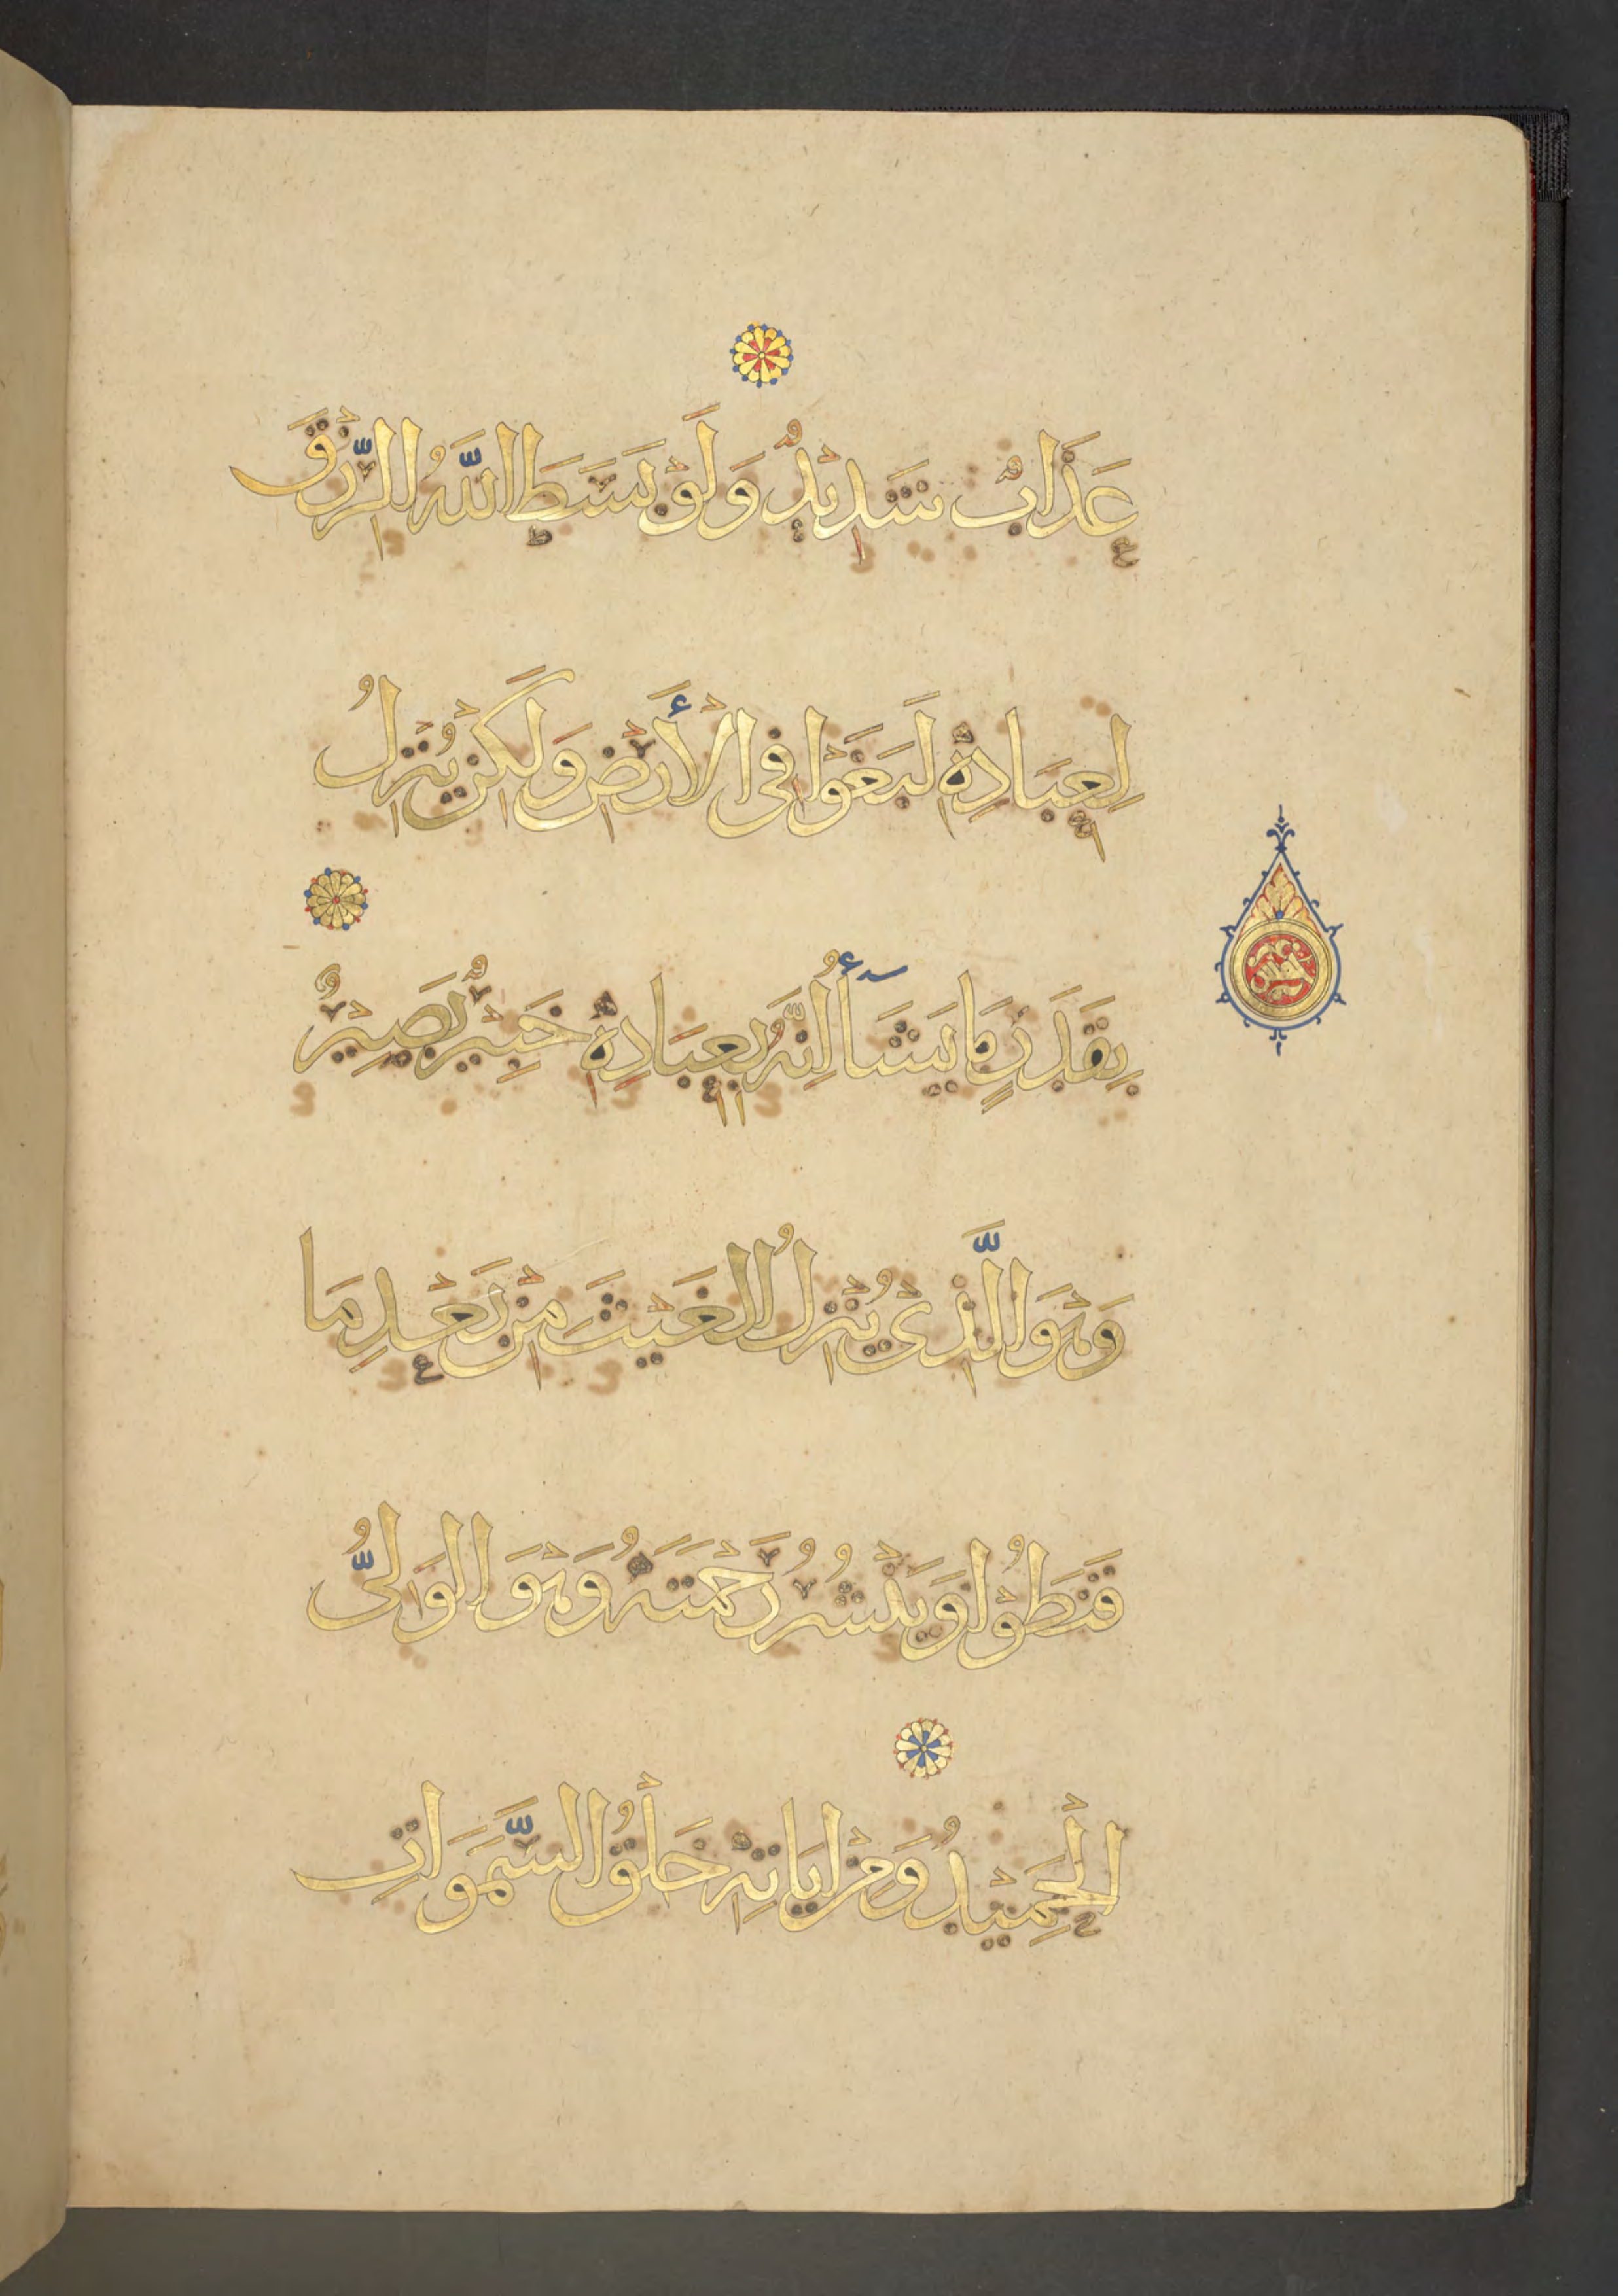 عَذَابٌ شَدِيْدٌ وَلَوْ بَسَطَ اللّٰهُ الرِّزْقَ
لِعِبَادِهٖ لَبَغَوْا فِى الْأَرْضِ وَلٰكِنْ يُنَزِلُ
بِقَدَرٍ مَا يَشَآأُ اِنَّهُ بِعِبَادِهٖ خَبِيْرٌ بَصِيْرٌ
وَهُوَ الَّذِىْ يُنَزِلُ الْغَيْثَ مِنْ بَعْدِ مَا
قَنَطُوْا وَيَنْشُرُ رَحْمَتَهُ وَهُوَ الْوَلِىُّ
الْحَمِيْدُ وَمِنْ اٰيَاتِهٖ خَلْقُ السَّمَوَاتِ